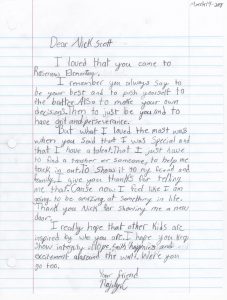 Dear Nick Scott
I loved that you came to
Rosemary Elementary.
I remember you always say to
be your best and to push yourself to
the better. Also to make your own
decisions. Then to just be you and to
have grit and perseverance.
But what I loved the most was
when you said that I was special and
that I have a talent. That I just have
to find a teacher or someone, to help me
it to my friend and
family. I give you thanks for telling
me that. Cause now I feel like I am
going to be amazing at something in life.
Thank you Nick for showing me a new
door.
I really hope that other kids are
inspired by who you are. I hope you keep
show integrity, hope, faith, happiness and
excitement around the world. Were you
go too.
Your friend